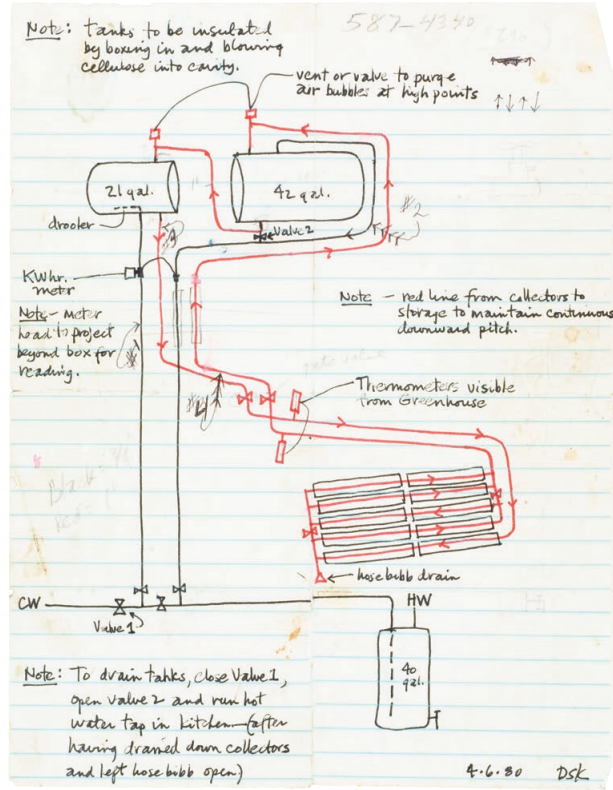 587-4340
Note: Tanks to be insulated
by boxing in and blowing
cellulose into cavity.
vent or valve to purge
air bubbles at high points
↑↓↑↓
21 gal.
42 gal.
drooler
Valve 2
#2
KWhr.
meter
Note - meter
head to project
beyond box for
reading.
Note - red line from collectors to
storage to maintain continuous
downward pitch.
Thermometers visible
from Greenhouse
hose bibb drain
CW
Valve 1
HW
40
gal.
Note: To drain tanks, close Valve 1,
open valve 2 and run hot
water tap in kitchen—(after
having drained down collectors
and left hose bibb open)
4.6.80 DSK